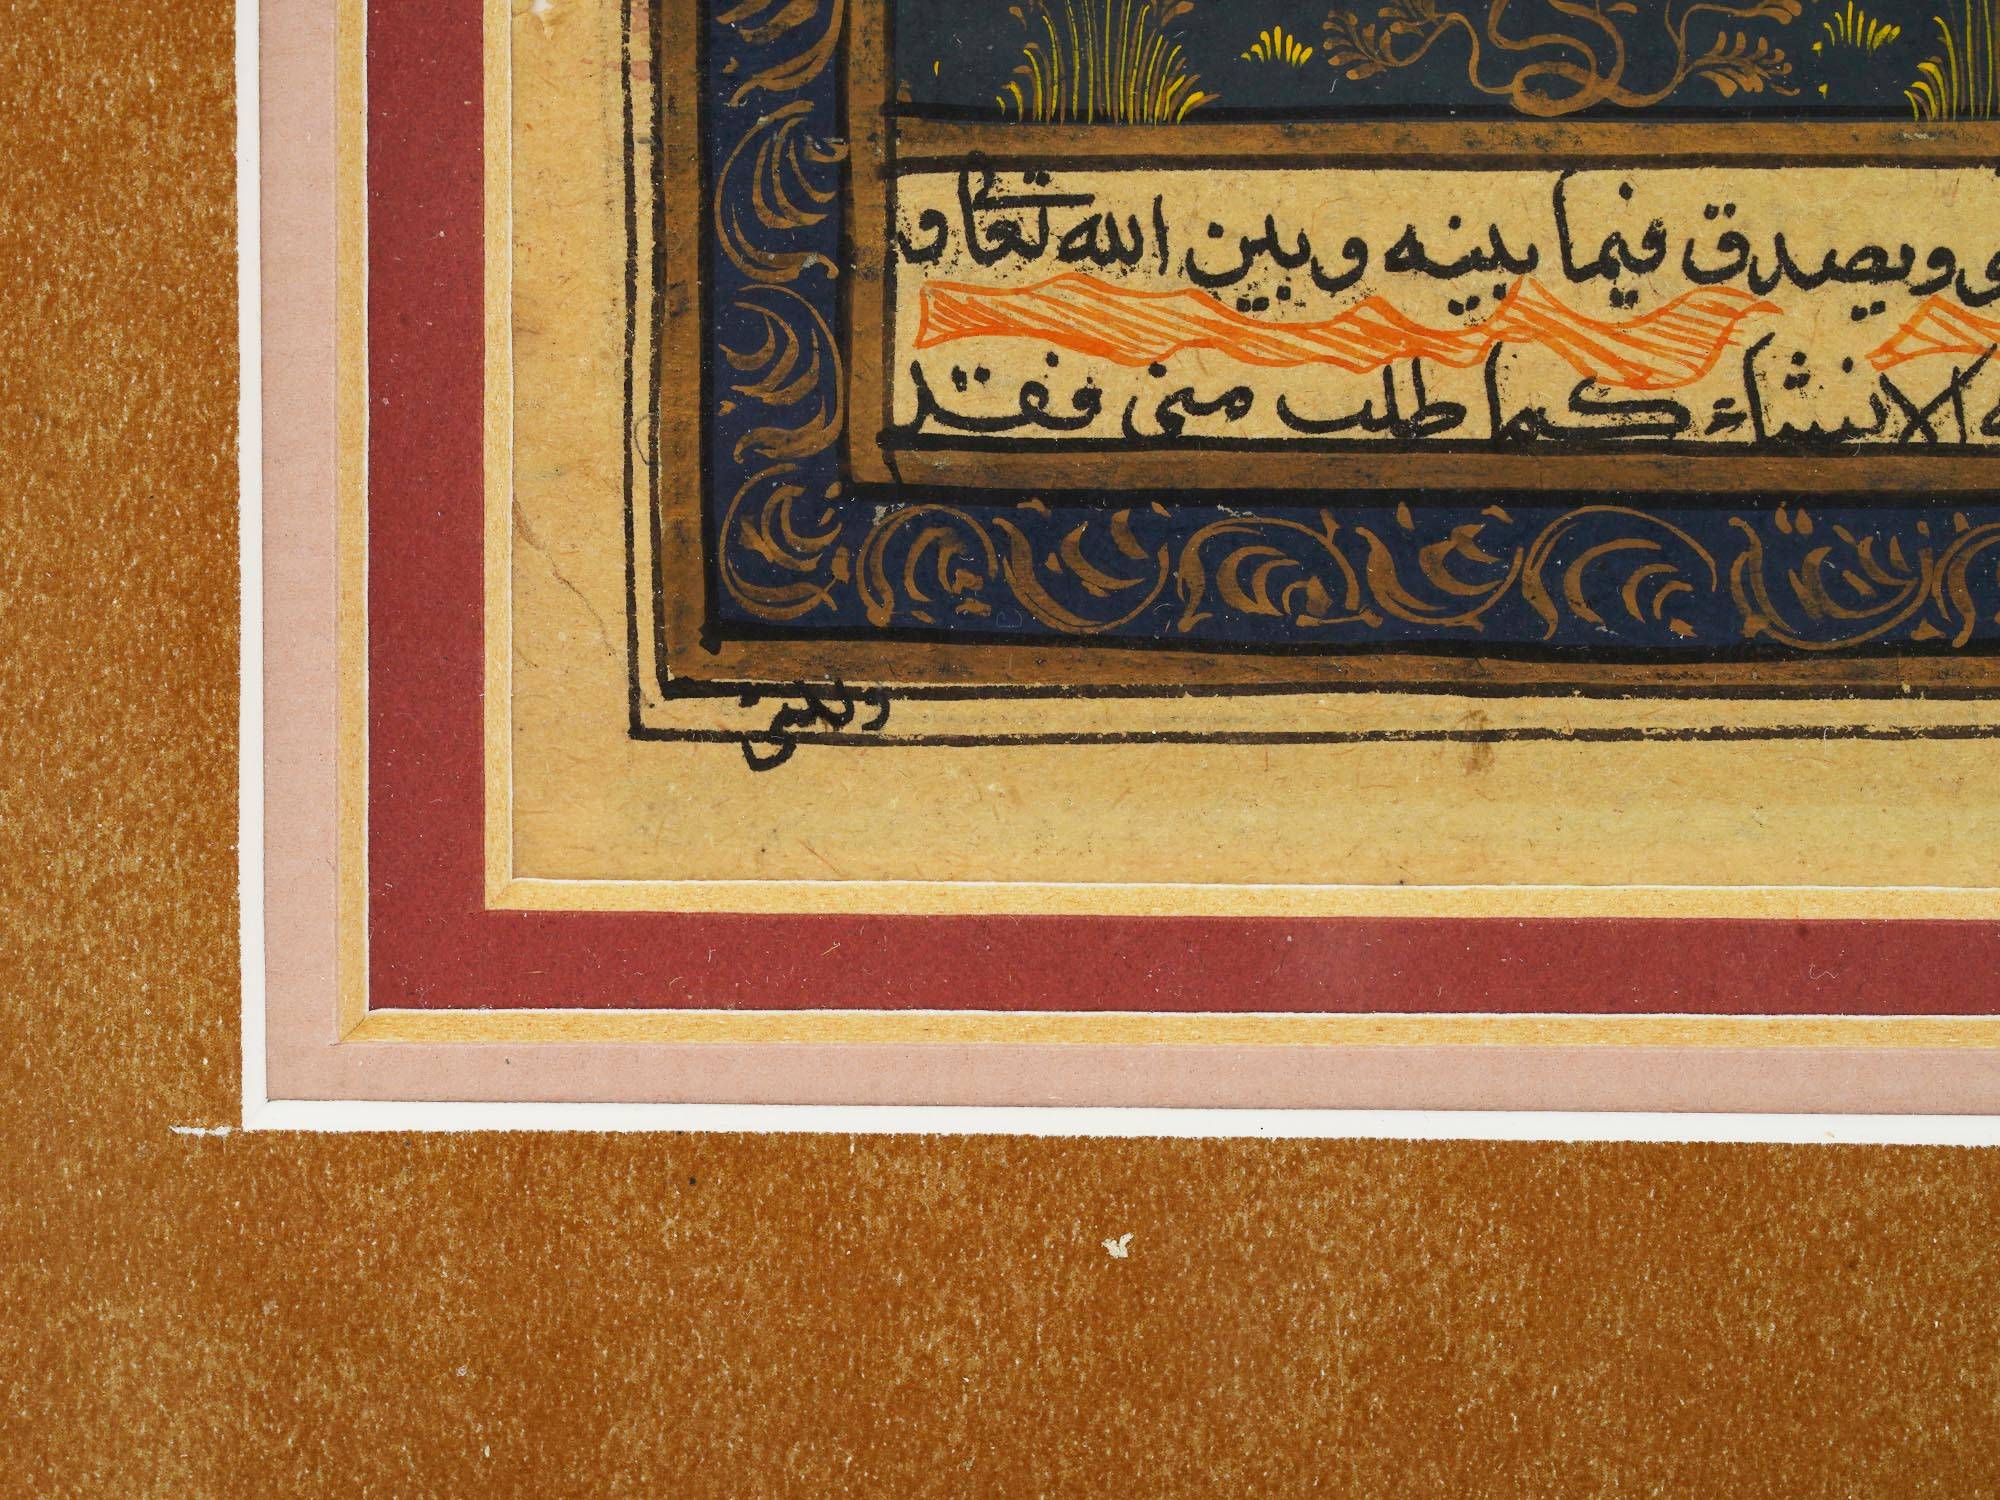 ويصدق فيما بينه وبين الله تعالى و
الانشاء كما طلب منى فقد